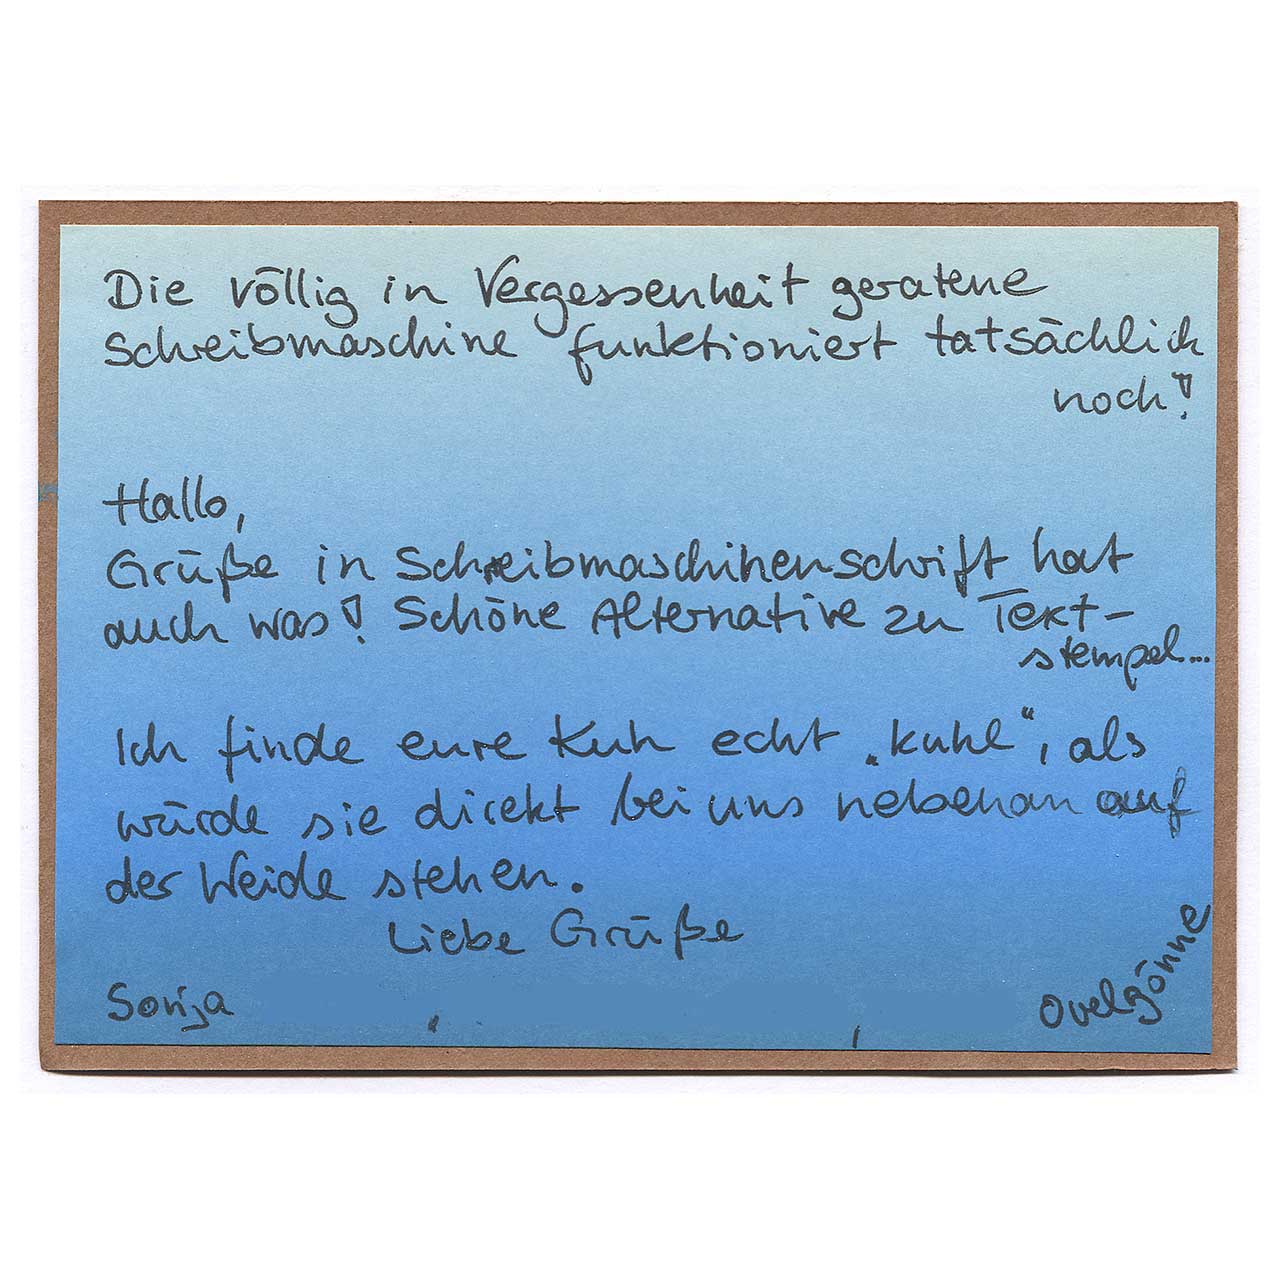 Die völlig in Vergessenheit geratene
Schreibmaschine funktioniert tatsächlich
noch!
Hallo,
Grüße in Schreibmaschinenschrift hat
auch was! Schöne Alternative zu Text-
stempel...
Ich finde eure Kuh echt „kuhl“, als
würde sie direkt bei uns nebenan auf
der Weide stehen.
Liebe Grüße
Sonja
Ovelgönne